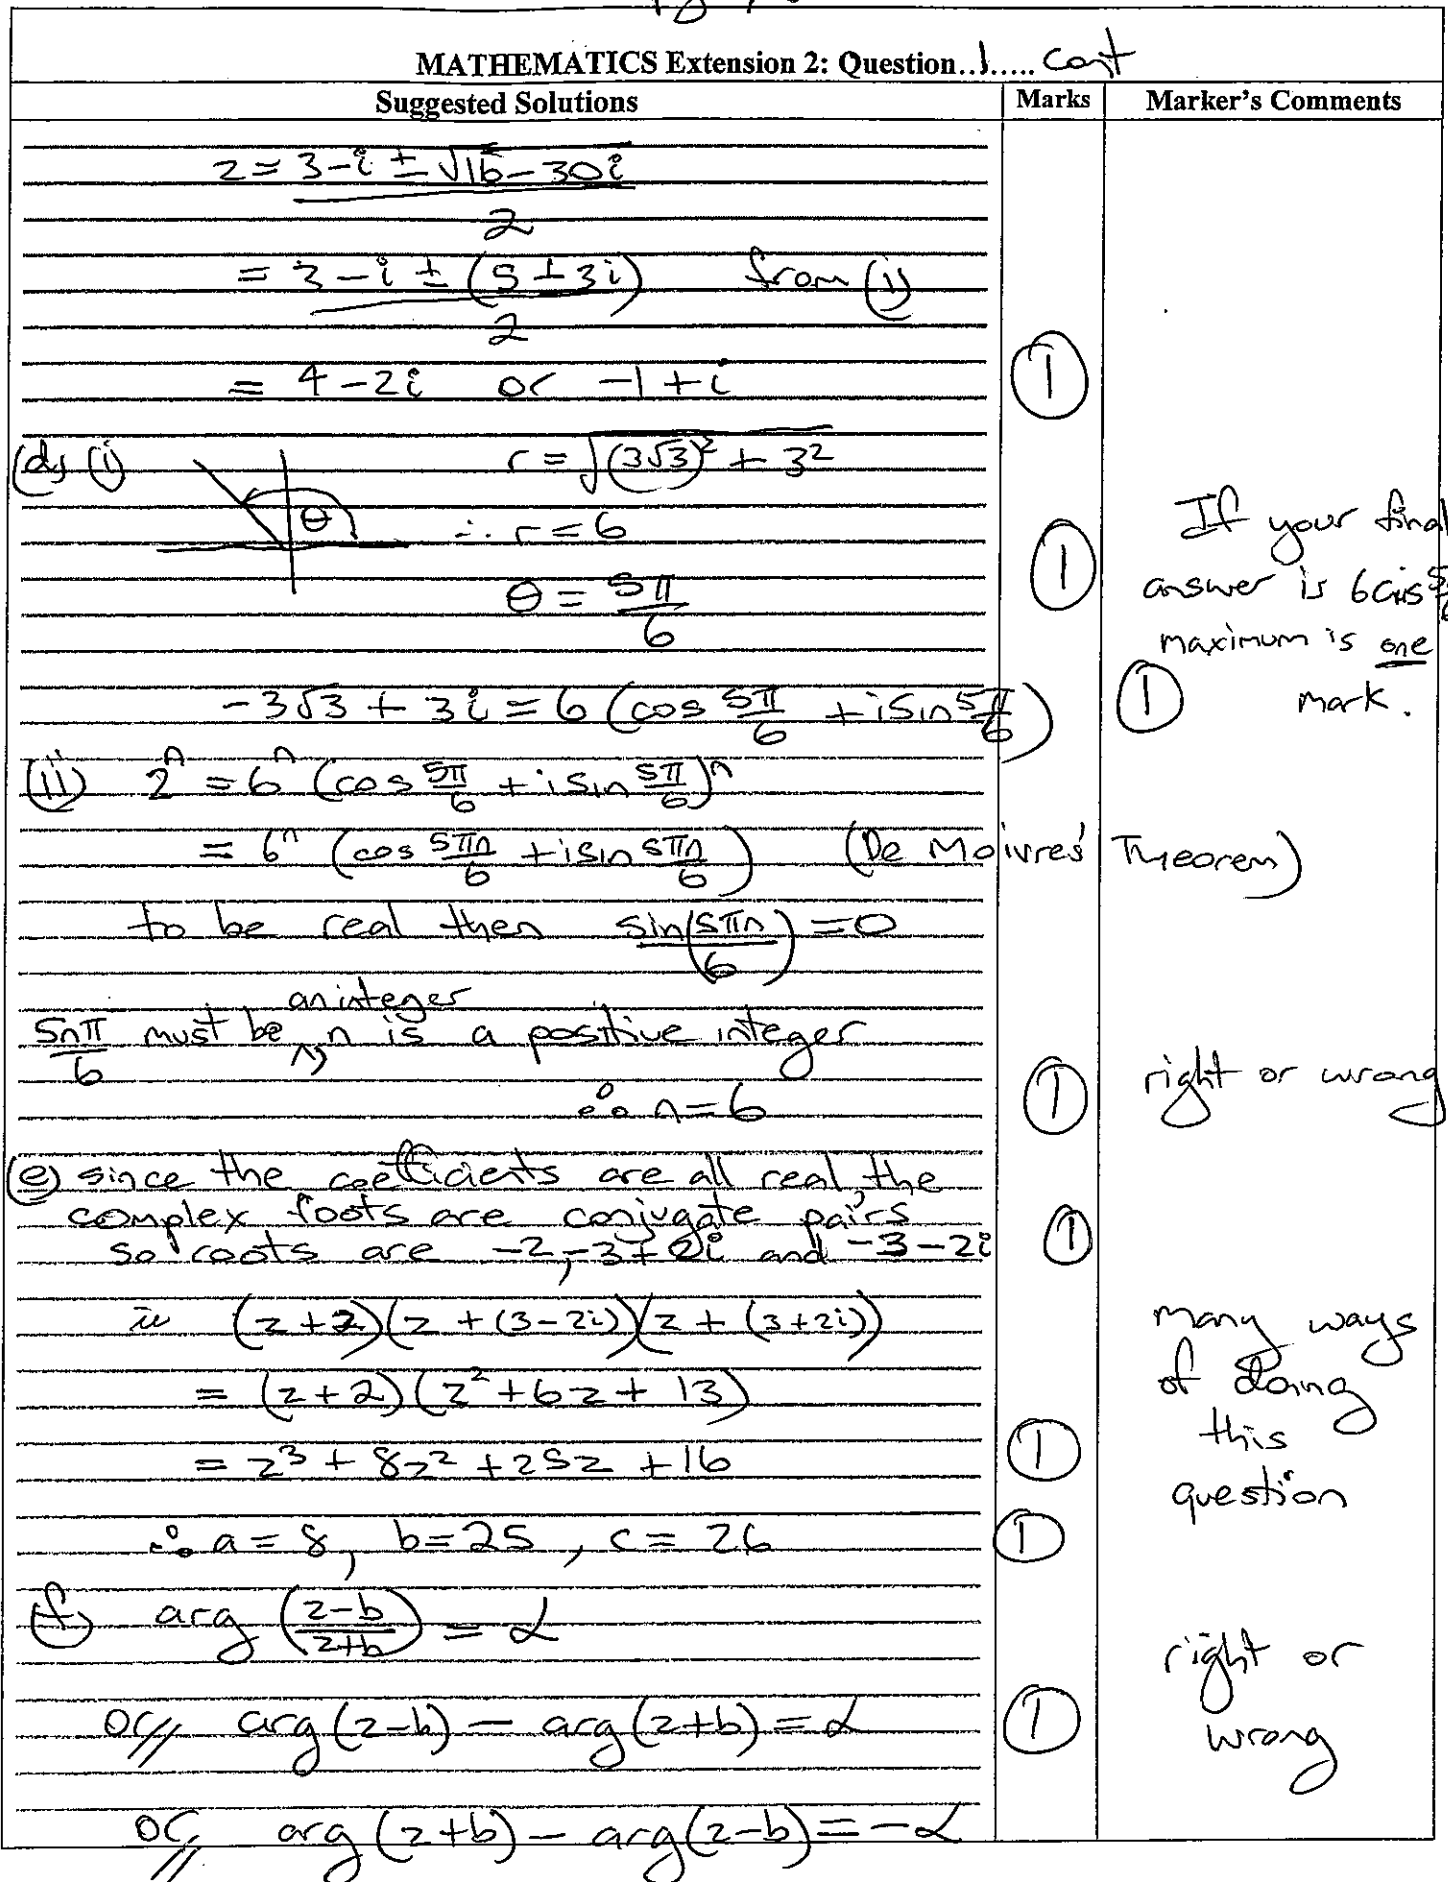 MATHEMATICS Extension 2: Question..1..... cont
Suggested Solutions Marks Marker's Comments
z = 3-i ± √16-30i
2
= 3-i ± (5±3i) from (i)
2
= 4-2i or -1+i ①
(d) (i) r = √(3√3)² + 3²
θ ∴ r = 6
If your final
① answer is 6cis 5π/6
θ = 5π/6
maximum is one
mark.
-3√3 + 3i = 6 (cos 5π/6 + i sin 5π/6) ①
(ii) zⁿ = 6ⁿ (cos 5π/6 + i sin 5π/6)ⁿ
= 6ⁿ (cos 5πn/6 + i sin 5πn/6) (De Moivres' Theorem)
to be real then sin(5πn/6) = 0
an integer
5nπ/6 must be ^, n is a positive integer
∴ n = 6 ① right or wrong
(e) since the coefficients are all real, the
complex roots are conjugate pairs
so roots are -2, -3+2i and -3-2i ①
ie (z+2)(z+(3-2i))(z+(3+2i))
= (z+2)(z²+6z+13)
= z³ + 8z² + 25z + 16 ①
many ways
of doing
this
question
∴ a = 8, b = 25, c = 26 ①
(f) arg (z-b/z+b) = α
or// arg(z-b) - arg(z+b) = α ①
right or
wrong
or// arg(z+b) - arg(z-b) = -α